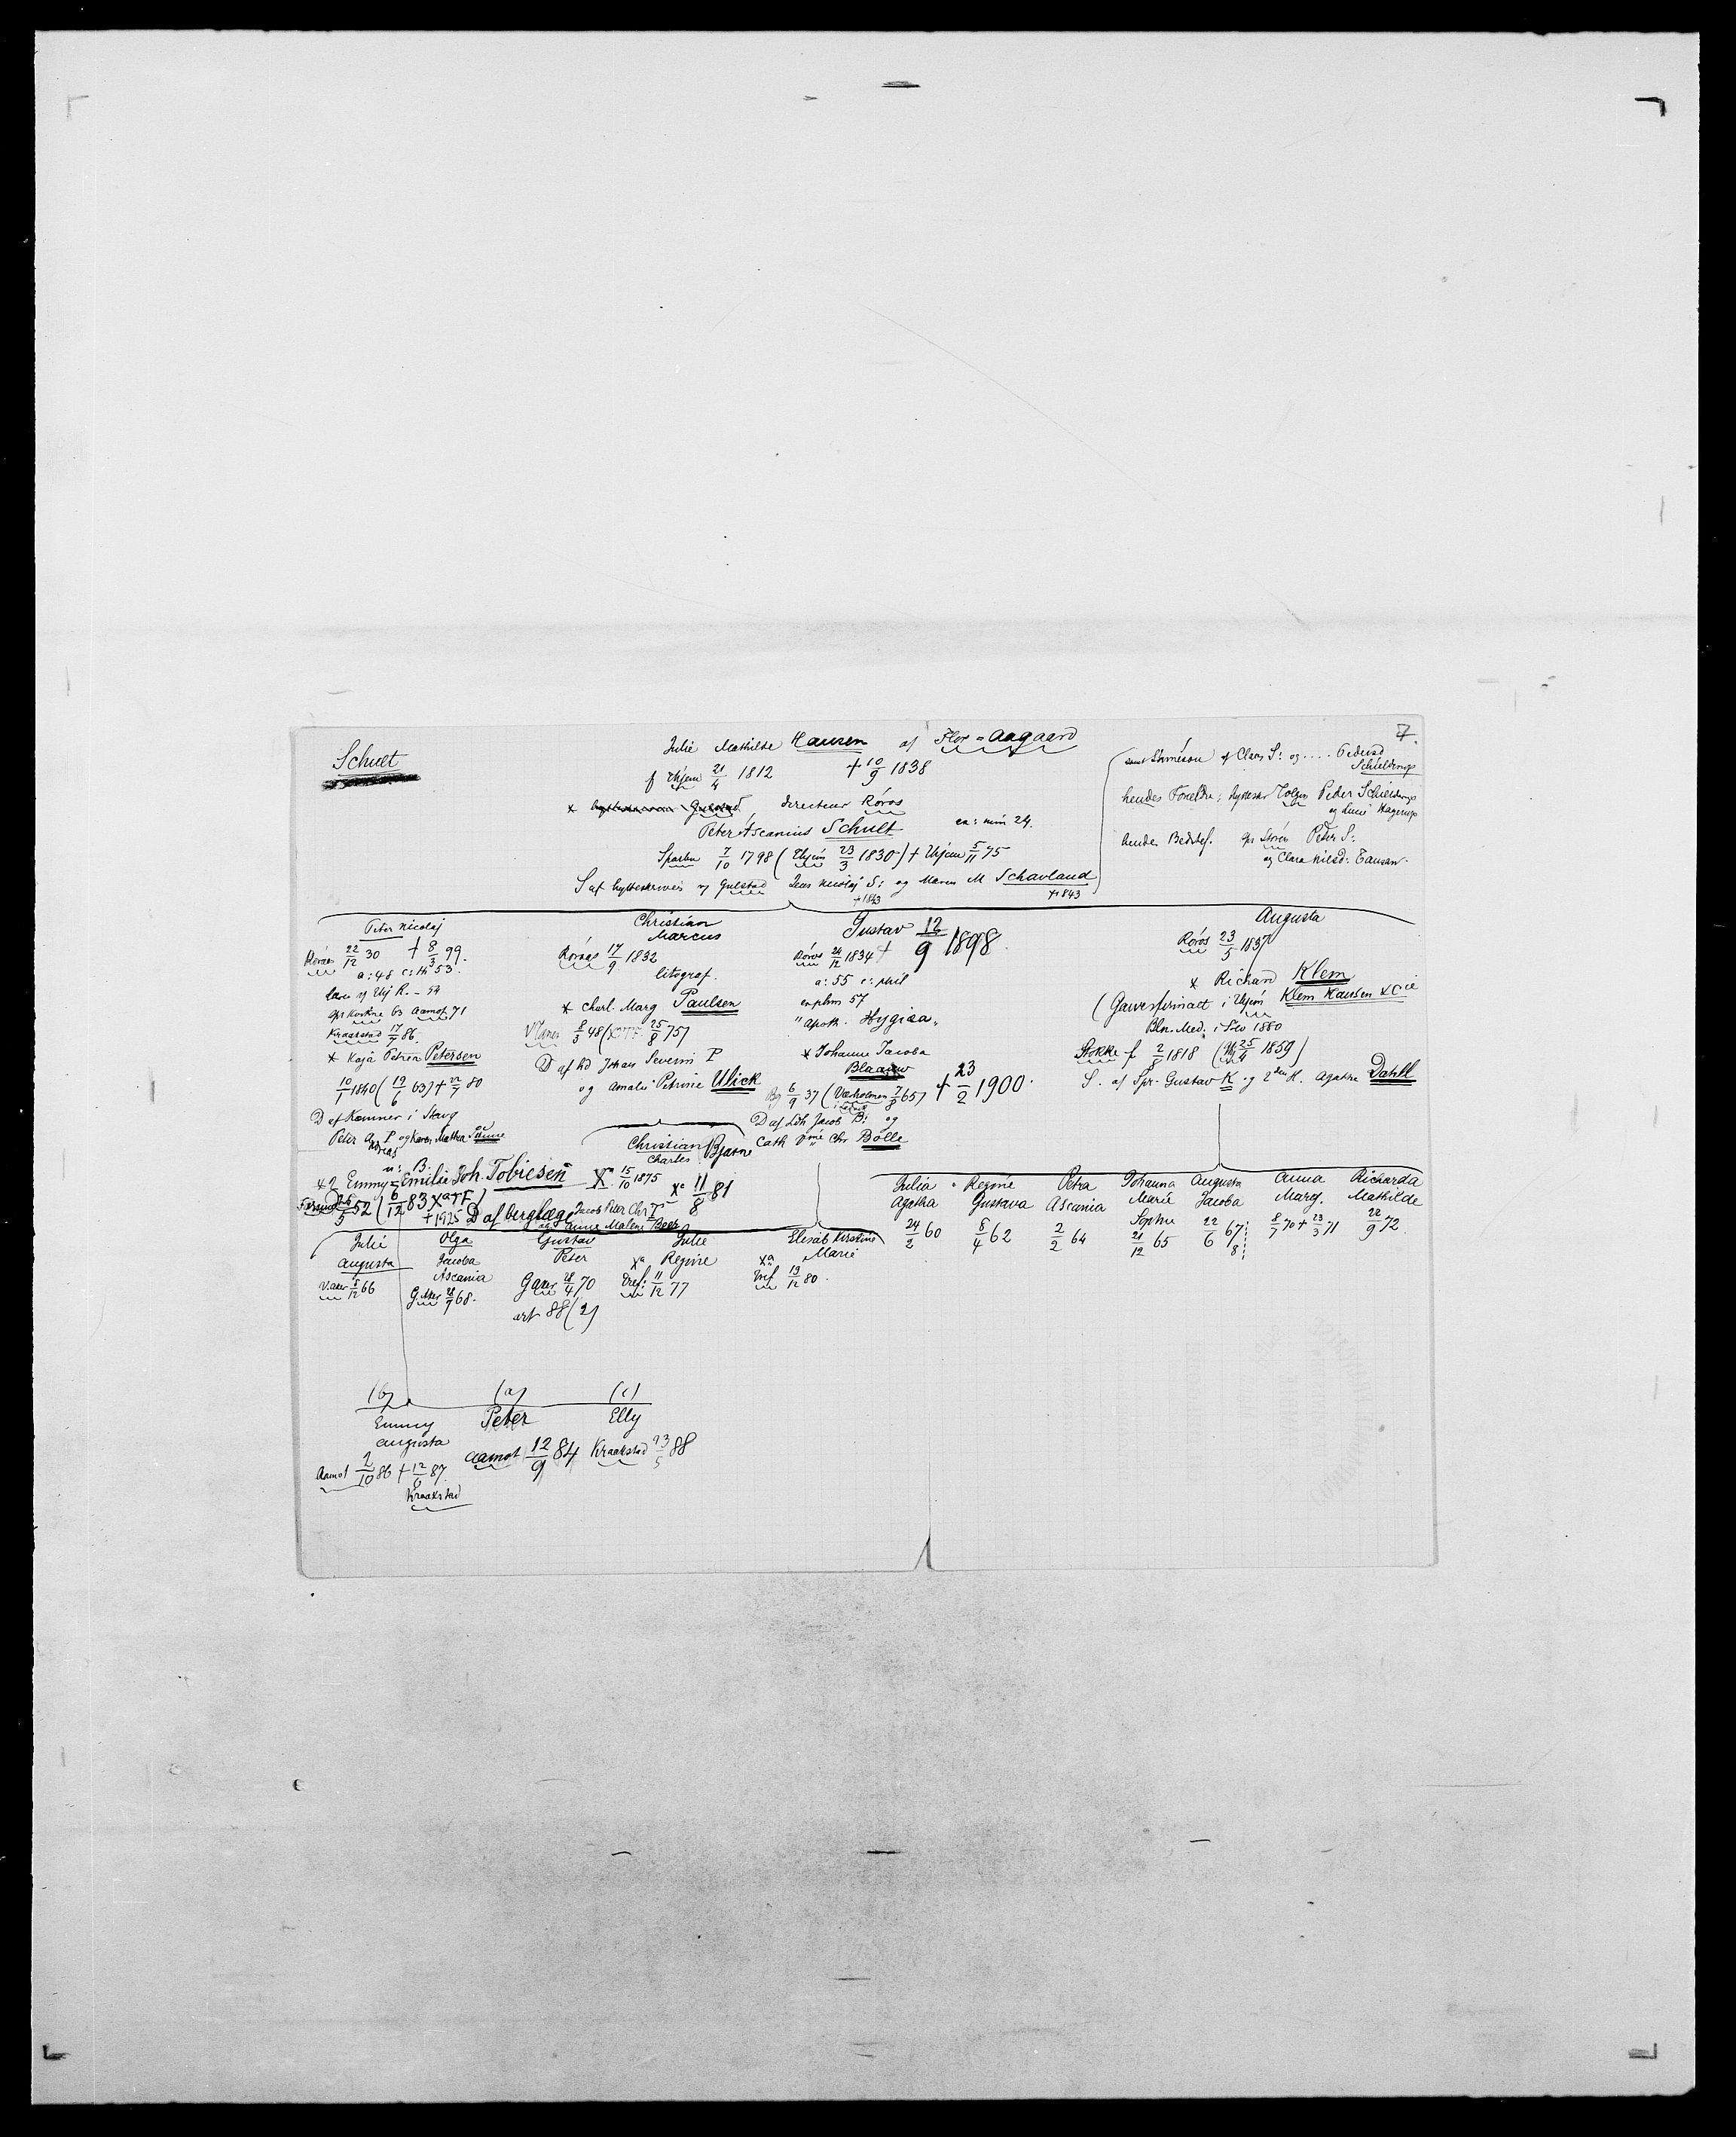 7.
Schult
Julie Mathilde Hansen af Flor - Aagaard
f Thjem 21/4 1812 † 10/9 1838
× directeur Röros
Peter Ascanius Schult ex: min 24.
Sparbu 7/10 1798 (Thjem 23/3 1830) † Thjem 5/11 75
S af hytteskriver v/ Gulstad Jens Nicolaj S: og Maren M Schavland
†1843 †1843
af Claus S: og .... Pedersd
Schielderup
hendes Foreldre: Tolgen Peder Schielderup
og Hagerup
hendes Bedstef. Peter S:
og Clara Nilsd: Tausan.
Peter Nicolaj
Röros 22/12 30 † 8/3 99.
a: 48 c: th 53.
v/ Thj R. - 54
63 Aamot 71
Kraakstad 17/7 86.
× Kaja Petrea Petersen
10/1 1840 (19/6 63) † 22/7 80
D af Kæmner i Skavg
Peter Andreas P og Karen Mathea
×2 Emmy Emilie Joh. Tobiesen
26/5 52 (6/12 83 Xa TF)
†1925 D af berglæge Jacob Peter Chr T
og Anne Malene Boeck
Christian
Marcus
Röraas 17/9 1832
litograf.
× Charl. Marg Paulsen
8/3 48 (25/8 75)
D af Johan Severin P
og Amalie Petrine Ulick
Christian Bjarne
Charles
Xa 15/10 1875 Xa 11/8 81
Gustav 12/9 1898.
Röros 24/12 1834 †
a: 55 c: phil
exphm 57
" apoth. Hygiæa "
× Johanne Jacoba
Blaauw
Bg 6/9 37 (Vaxholmen 7/8 65) † 23/2 1900.
D af Jacob B: og
Cath Chr Bölle
Augusta
Röros 23/5 1837
× Richard Klem
(Garverfirmaet i Thjem Klem Hansen & Cie
Bln. Med. i 1880
Stokke f 2/8 1818 (25/4 1859)
S. af Spr. Gustav K og 2den H. Agathe Dahll
Julie
Augusta
V. Aker 8/12 66
Olga
Jacoba
Ascania
G Aker 28/9 68.
Gustav
Peter
G Aker 28/4 70
art 88 (2)
Julie
Xa Regine
Tref: 11/12 77
Elisab Kirstine
Xa Marie
Tref 13/12 80.
Julia
Agatha
24/2 60
Regine
Gustava
8/4 62
Petra
Ascania
2/2 64
Johanna
Marie
Sophie
21/12 65
Augusta
Jacoba
22/6 67
Anna
Marg.
8/7 70 † 23/3 71
Richarda
Mathilde
22/9 72.
(b) (a) (c)
Emmy
Augusta
Aamot 2/10 86 † 12/6 87.
Kraakstad
Peter
Aamot 12/9 84
Elly
Kraakstad 23/5 88